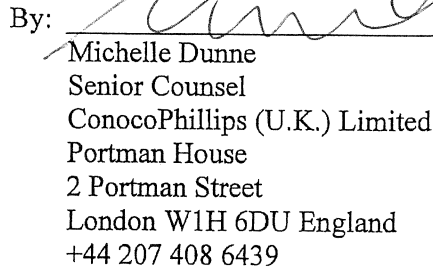 By:
Michelle Dunne
Senior Counsel
ConocoPhillips (U.K.) Limited
Portman House
2 Portman Street
London W1H 6DU England
+44 207 408 6439